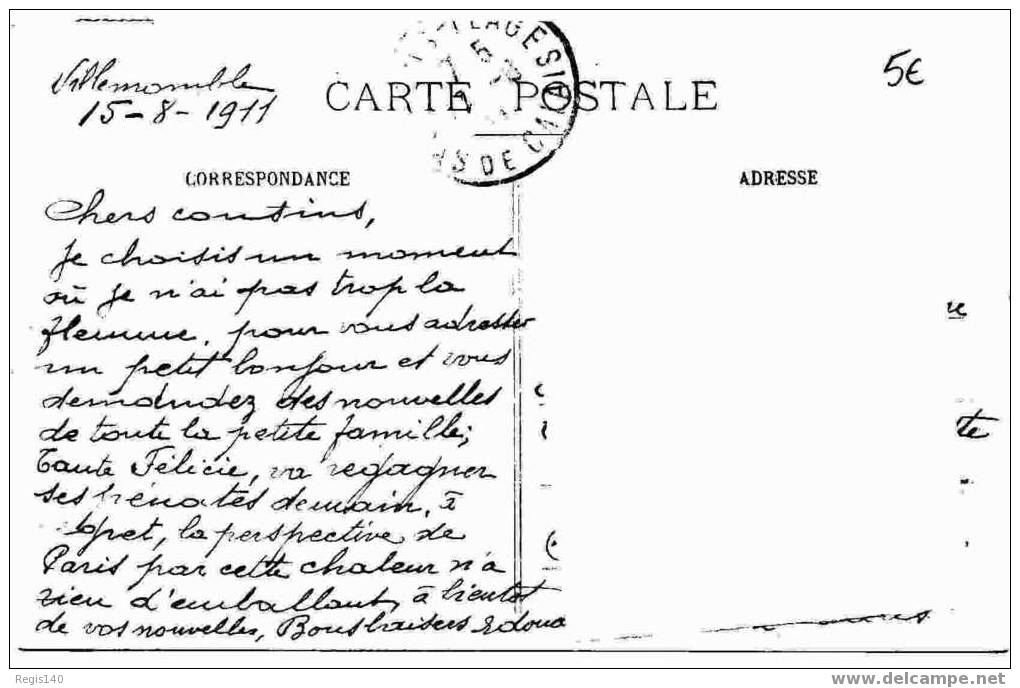 Villemomble
15-8-1911
5€
CARTE POSTALE
DE CALAIS
CORRESPONDANCE
ADRESSE
Chers cousins,
Je choisis un moment
où je n'ai pas trop la
flemme, pour vous adresser
un petit bonjour et vous
demandez des nouvelles
de toute la petite famille;
Tante Félicie, va regagner
ses pénates demain, à
la perspective de
Paris par cette chaleur n'a
rien d'emballant, à bientôt
de vos nouvelles, Bons baisers
te
Regis140
www.delcampe.net